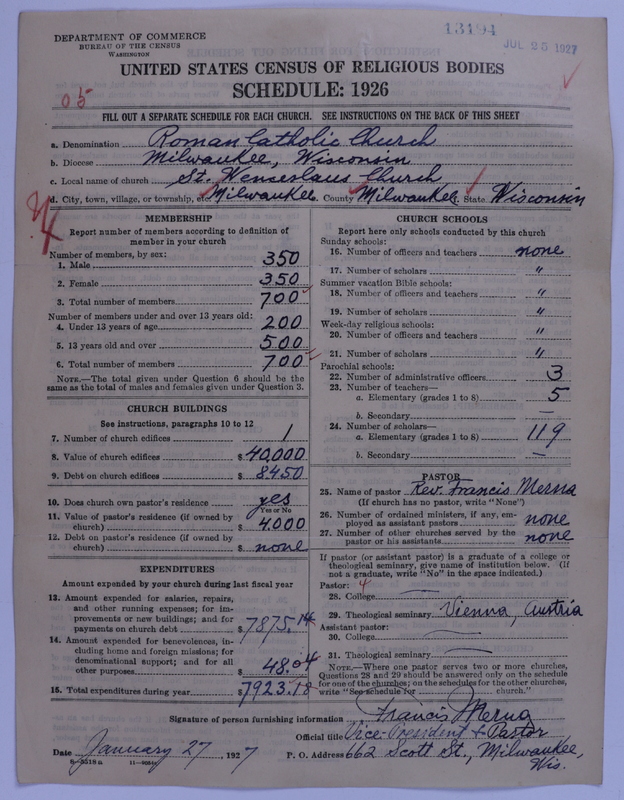 DEPARTMENT OF COMMERCE
BUREAU OF THE CENSUS
WASHINGTON
13194
JUL 25 1927
UNITED STATES CENSUS OF RELIGIOUS BODIES
SCHEDULE: 1926
05
FILL OUT A SEPARATE SCHEDULE FOR EACH CHURCH. SEE INSTRUCTIONS ON THE BACK OF THIS SHEET
a. Denomination Roman Catholic Church
b. Diocese Milwaukee, Wisconsin
c. Local name of church St. Wenceslaus Church
d. City, town, village, or township, etc. Milwaukee. County Milwaukee. State Wisconsin
MEMBERSHIP
Report number of members according to definition of
member in your church
Number of members, by sex:
1. Male 350
2. Female 350
3. Total number of members 700
Number of members under and over 13 years old:
4. Under 13 years of age 200
5. 13 years old and over 500
6. Total number of members 700
NOTE.—The total given under Question 6 should be the
same as the total of males and females given under Question 3.
CHURCH BUILDINGS
See instructions, paragraphs 10 to 12
7. Number of church edifices 1
8. Value of church edifices $ 40,000
9. Debt on church edifices $ 8450
10. Does church own pastor's residence yes
Yes or No
11. Value of pastor's residence (if owned by
church) $ 4,000
12. Debt on pastor's residence (if owned by
church) $ none
EXPENDITURES
Amount expended by your church during last fiscal year
13. Amount expended for salaries, repairs,
and other running expenses; for im-
provements or new buildings; and for
payments on church debt $ 7875.14
14. Amount expended for benevolences, in-
cluding home and foreign missions; for
denominational support; and for all
other purposes $ 48.04
15. Total expenditures during year $ 7923.18
CHURCH SCHOOLS
Report here only schools conducted by this church
Sunday schools:
16. Number of officers and teachers none
17. Number of scholars "
Summer vacation Bible schools:
18. Number of officers and teachers "
19. Number of scholars "
Week-day religious schools:
20. Number of officers and teachers "
21. Number of scholars "
Parochial schools:
22. Number of administrative officers 3
23. Number of teachers—
a. Elementary (grades 1 to 8) 5
b. Secondary —
24. Number of scholars—
a. Elementary (grades 1 to 8) 119
b. Secondary —
PASTOR
25. Name of pastor Rev. Francis Merna
(If church has no pastor, write "None")
26. Number of ordained ministers, if any, em-
ployed as assistant pastors none
27. Number of other churches served by the
pastor or his assistants none
If pastor (or assistant pastor) is a graduate of a college or
theological seminary, give name of institution below. (If
not a graduate, write "No" in the space indicated.)
Pastor: 4
28. College —
29. Theological seminary Vienna, Austria
Assistant pastor:
30. College —
31. Theological seminary —
NOTE.—Where one pastor serves two or more churches,
Questions 28 and 29 should be answered only on the schedule
for one of the churches; on the schedules for the other churches,
write "See schedule for church."
Signature of person furnishing information Francis Merna
Official title Vice-President & Pastor
Date January 27, 1927
P. O. Address 662 Scott St., Milwaukee,
Wis.